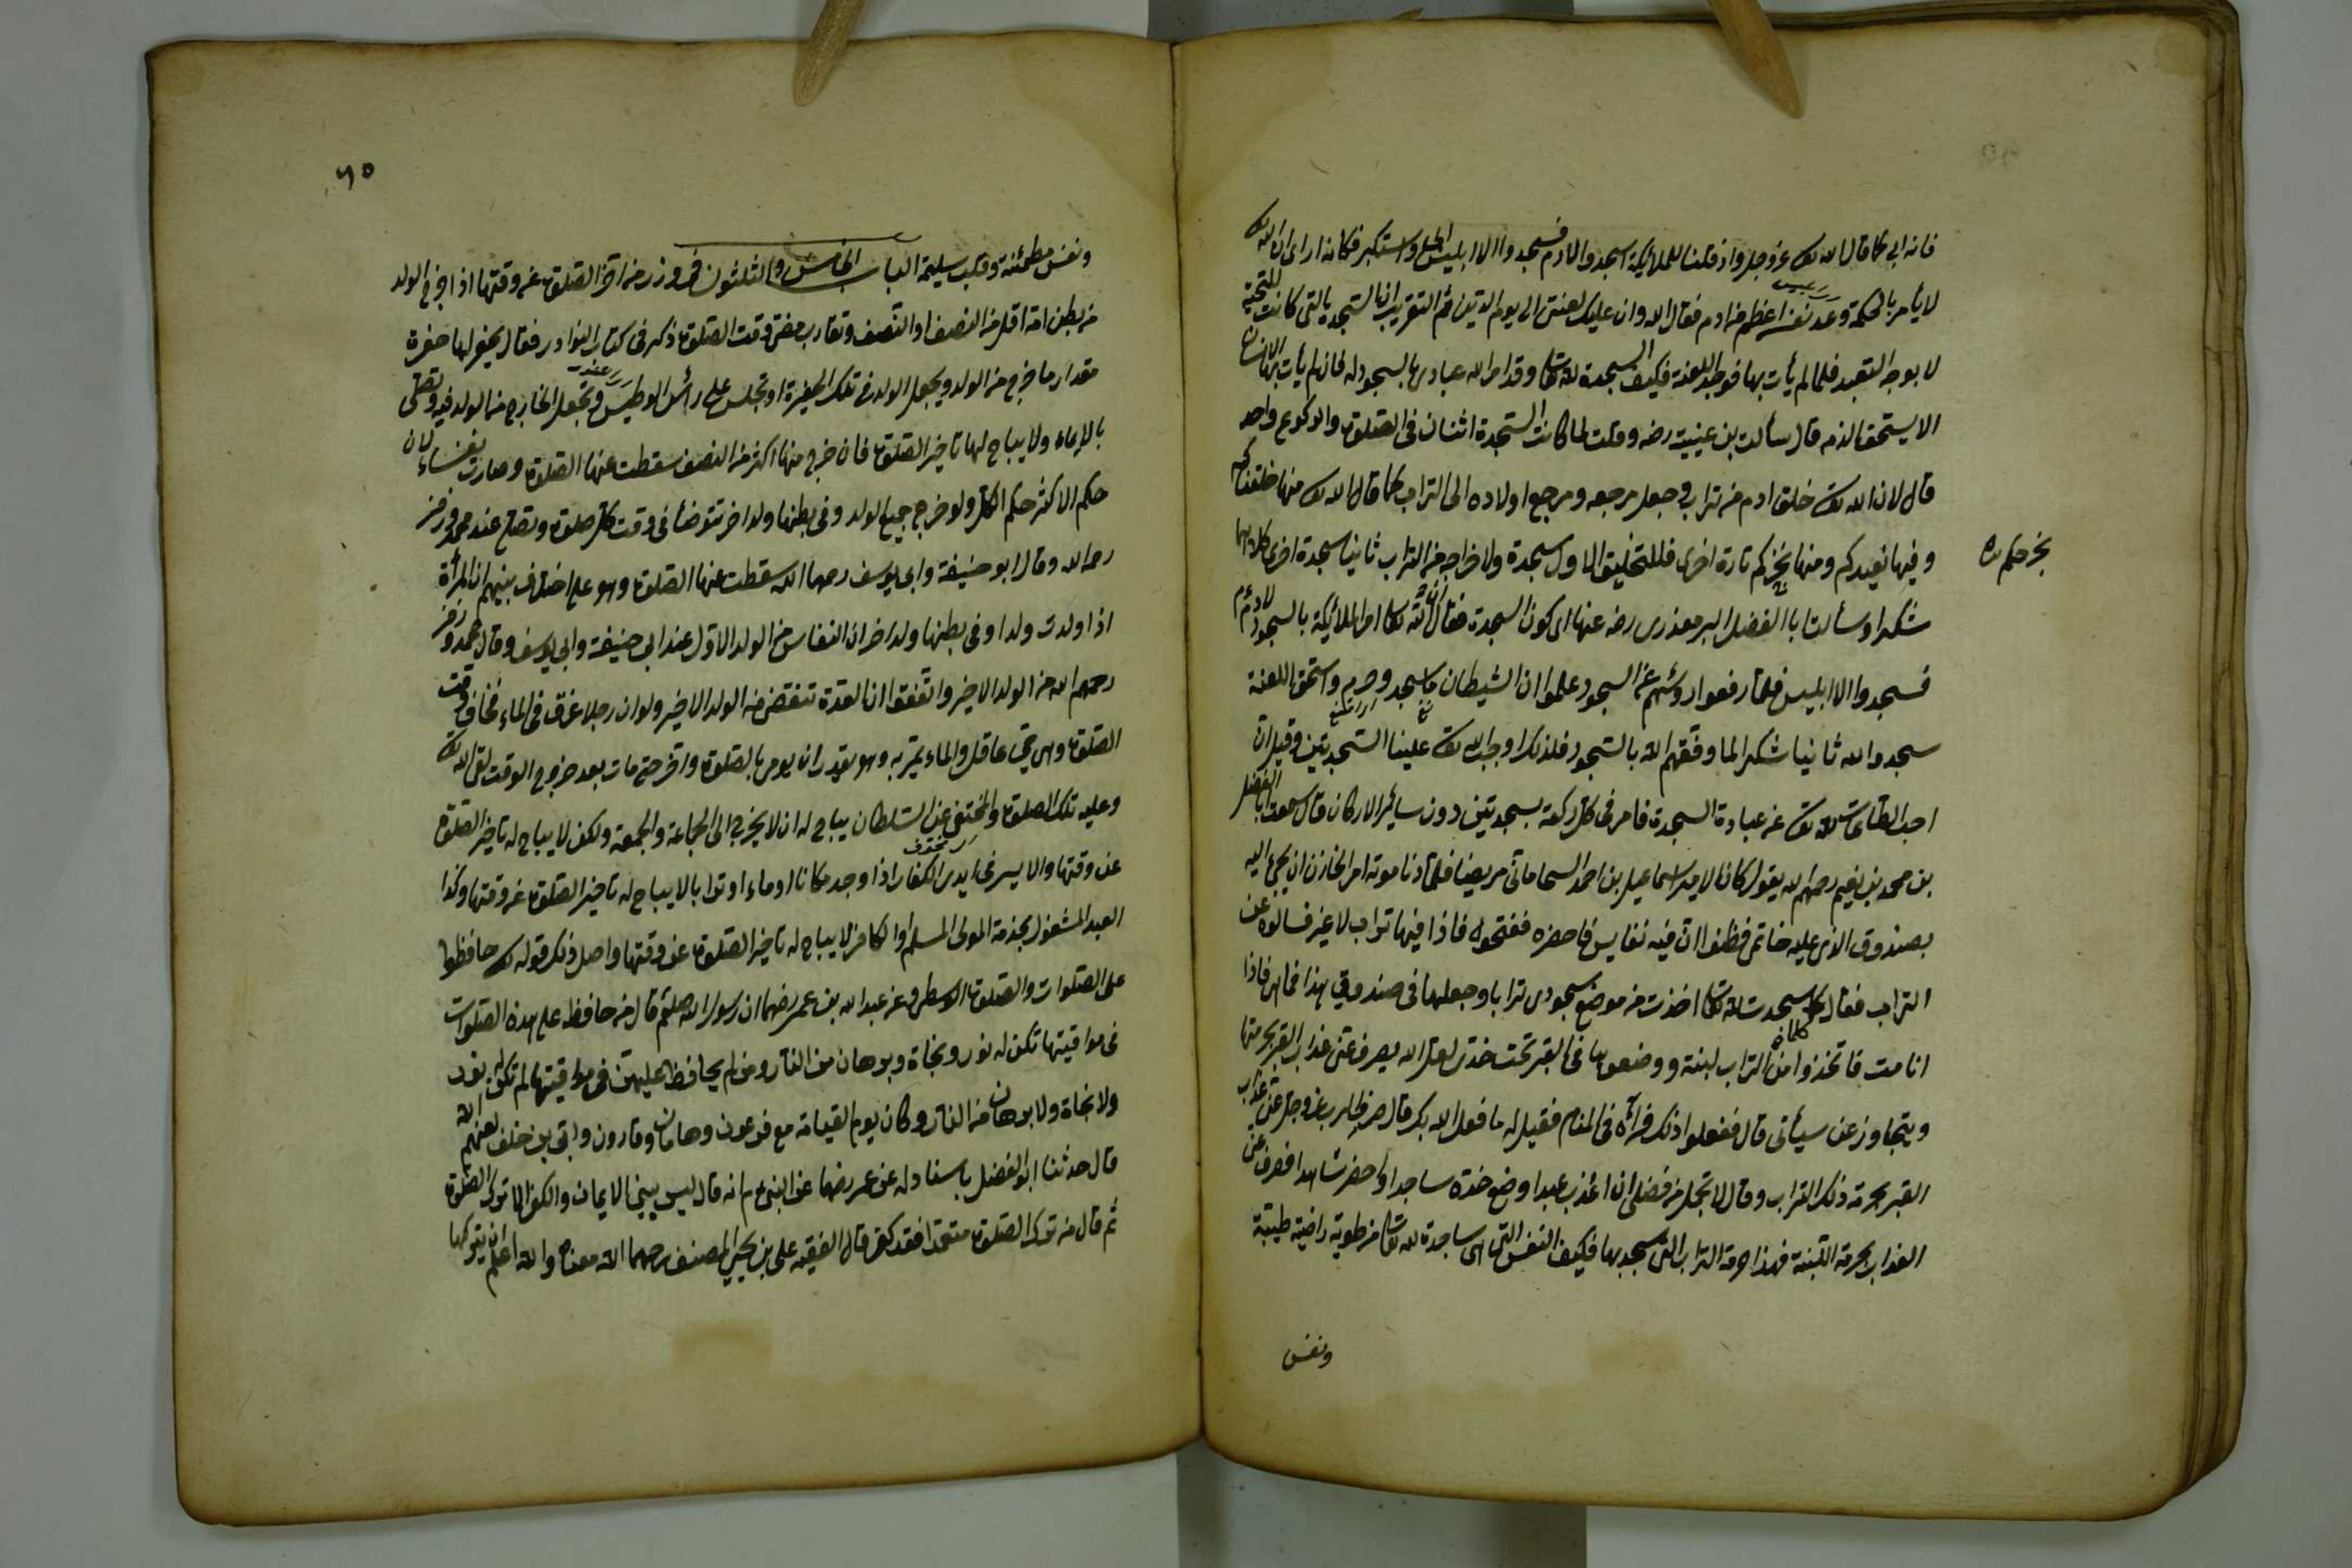 فانه ابى كما قال الله تعالى عز وجل واذ قلنا للملائكة اسجدوا لادم فسجدوا الا ابليس ابى واستكبر فكانه ارى ان الله تعالى
لا يأمر بالحكمة وعد نفسه اعظم من ادم فقال الله وان عليك لعنتى الى يوم الدين ثم التقريب ان السجدة التى كانت للتحية
لا بوجه التعبد فلما لم يأت بها فوجد اللعنة فكيف السجدة لله تعالى وقد امر الله عباده بالسجود له فان لم يأت بها الانسان
الا يستحق الذم قال سألت بن عيينة رضه وقلت لما كانت السجدة اثنان فى الصلوة والركوع واحد
قال لان الله تعالى خلق ادم من تراب وجعل مرجعه ومرجع اولاده الى التراب كما قال الله تعالى منها خلقناكم
وفيها نعيدكم ومنها نخرجكم تارة اخرى فللتخليق الاول سجدة ولاخراجه من التراب ثانيا سجدة اخرى كلاهما
نخرجكم
شكرا وسألت ابا الفضل رضه عنها اى كون السجدة فقال ان الله تعالى امر الملائكة بالسجود لادم عم
فسجدوا الا ابليس فلما رفعوا روئسهم عن السجود علموا ان الشيطان ما سجد وحرم واستحق اللعنة
سجدوا لله ثانيا شكرا لما وفقهم الله بالسجود فلذلك اوجب الله تعالى علينا السجدتين وقيل ان
احب الطاعات لله تعالى من عبادة السجدة فامر فى كل ركعة بسجدتين دون سائر الاركان قال سمعت ابا الفضل
بن محمد بن نعيم رحمهم الله يقول كان الامير اسماعيل بن احمد السامانى مريضا فلما دنا موته امر الخازن ان يجئ اليه
بصندوق الذى عليه خاتمى فظنوا ان فيه نفايس فاحضره ففتحوه فاذا فيها تراب لا غير فسالوه عن
التراب فقال كلما سجدت لله تعالى اخذت من موضع سجودى ترابا وجعلها فى صندوقى هذا فاذا
انا مت فاتخذوا من التراب لبنة ووضعوها فى القبر تحت خدى لعل الله يصرف عنى عذاب القبر بحرمتها
ويتجاوز عن سيأتى قال ففعلوا ذلك فرآه فى المنام فقيل له ما فعل الله بك قال صرف ربى عز وجل عنى عذاب
القبر بحرمة ذلك التراب وقال لا تجل من فضلى ان اعذب عبدا وضع خده ساجدا لى حضر شاهدا فصرف عنى
العذاب بحرمة اللبنة فهذا حرمة التراب التى سجد بها فكيف النفس التى هى ساجدة لله تعالى مرطوبة راضية طيبة
ونفس
٦٥
ونفس مطمئنة وقلب سليمة الباب الخامس والثلثون فى وزر من اخر الصلوة عن وقتها اذا خرج الولد
من بطن امه اقل من النصف او النصف وتقارب مضى وقت الصلوة ذكر فى كتاب النوادر فقال يحفر لها حفرة
مقدار ما خرج من الولد ويجعل الولد فى تلك الحفرة او تجلس على رأس الوطيس وتجعل الخارج من الولد فيه وتصلى
بالايماء ولا يباح لها تاخير الصلوة فان خرج منها اكثر من النصف سقطت عنها الصلوة وصارت نفساء لان
حكم الاكثر حكم الكل ولو خرج جميع الولد وفى بطنها ولد اخر تتوضأ فى وقت كل صلوة وتصلى عند محمد وزفر
رحمه الله وقال ابو حنيفة وابى يوسف رحمهما الله سقطت عنها الصلوة وهو على اختلاف بينهم ان المرأة
اذا ولدت ولدا وفى بطنها ولد اخر ان النفاس من الولد الاول عند ابى حنيفة وابى يوسف وقال محمد وزفر
رحمهم الله من الولد الاخير واتفقوا ان العدة تنقضى من الولد الاخير ولو ان رجلا غرق فى الماء فخاف وقت
الصلوة وهى حى عاقل والماء يمر به وهو يقدر ان يومى بالصلوة واخر حتى مات بعد خروج الوقت لقى الله تعالى
وعليه تلك الصلوة والمختفى عن السلطان يباح له ان لا يخرج الى الجماعة والجمعة ولكن لا يباح له تاخير الصلوة
عن وقتها والاسير فى ايدى الكفار اذا وجد مكانا او ماء او ترابا لا يباح له تاخير الصلوة عن وقتها وكذا
العبد المشغول بخدمة المولى المسلم او الكافر لا يباح له تاخير الصلوة عن وقتها واصل ذلك قوله تعالى حافظوا
على الصلوات والصلوة الوسطى وعن عبد الله بن عمر رضهما ان رسول الله صلعم قال من حافظ على هذه الصلوات
فى مواقيتها تكن له نور ونجاة وبرهان من النار ومن لم يحافظ عليهن فى مواقيتها لم تكن له نور
ولا نجاة ولا برهان من النار وكان يوم القيامة مع فرعون وهامان وقارون وابى بن خلف لعنهم الله
قال حدثنا ابو الفضل باسناد له عن عمر رضهما عن النبى عم انه قال ليس بين الايمان والكفر الا ترك الصلوة
ثم قال من ترك الصلوة متعمدا فقد كفر قال الفقيه على بن يحيى المصنف رحمهما الله معناه والله اعلم ان يتركها